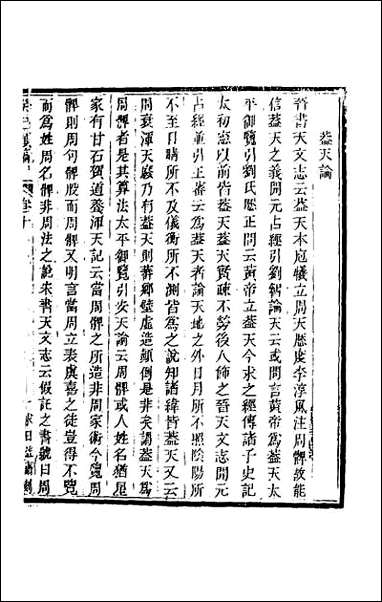 蓋天論
晉書天文志云蓋天本庖犧立周天歷度李淳風注周髀故能
信蓋天之義開元占經引劉智論天云或問言黃帝爲蓋天太
平御覽引劉氏歷正問云黃帝立蓋天今求之經傳諸子史記
太初憲以前皆蓋天蓋天質疎不勞後人飾之晉天文志開元
占經並引王蕃云爲蓋天者論天地之外日月所不照陰陽所
不至日晷所不及儀衡所不測皆爲之說知諸緯皆蓋天又云
周衰渾天廢乃有蓋天則葬鄉壁虛造顛倒是非矣謂蓋天爲
周髀者是其算法太平御覽引安天論云周髀或人姓名猶星
家有甘石賀道養渾天記云當周髀之所造非周家術今覽周
髀則周句髀股而周髀又明言當周立表虞喜之徒豈得不覽
而爲姓周名髀非周法之說宋書天文志云假託之書號曰周
卷十
求日益齋刻